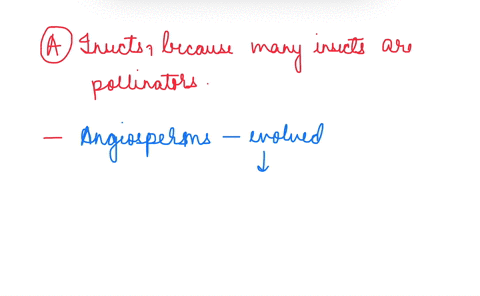 (A) Insects, because many insects are
pollinators.
— Angiosperms — evolved
↓